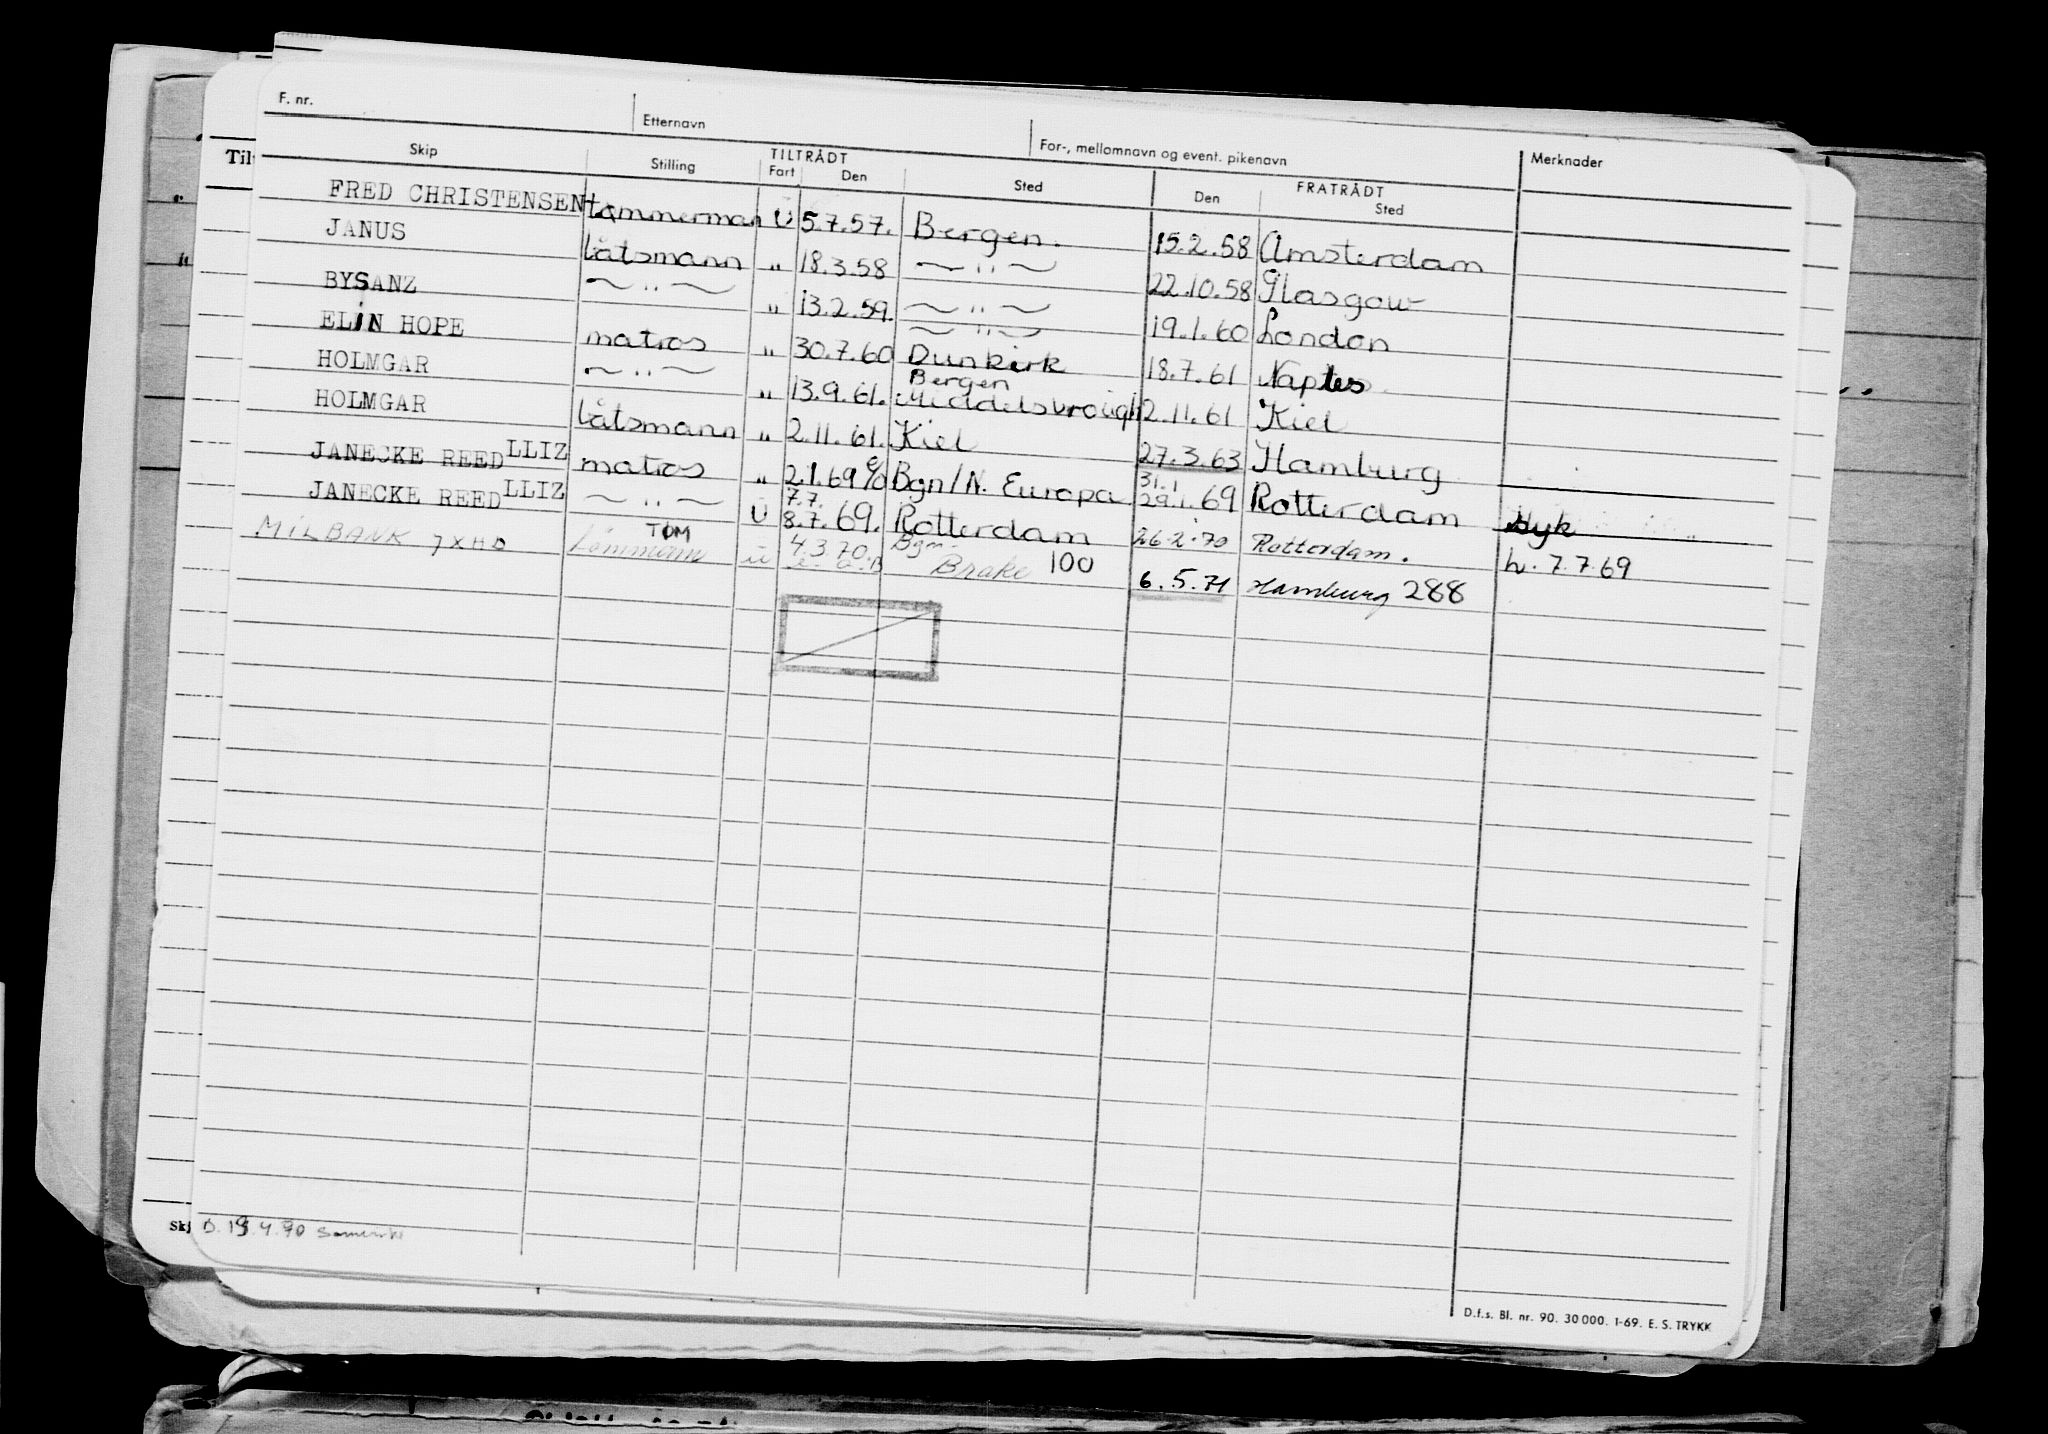 F. nr. Etternavn For-, mellomnavn og event. pikenavn Merknader
Skip Stilling TILTRÅDT Fart Den Sted FRATRÅDT Den Sted
FRED CHRISTENSEN tømmerman U 5.7.57. Bergen. 15.2.58 Amsterdam
JANUS båtsmann " 18.3.58 ~ " ~ 22.10.58 Glasgow
BYSANZ ~ " ~ " 13.2.59. ~ " ~ 19.1.60 London
ELIN HOPE matros " 30.7.60 ~ " ~ Dunkirk 18.7.61 Naples
HOLMGAR ~ " ~ " 13.9.61. Bergen Middelsbrough 2.11.61 Kiel
HOLMGAR båtsmann " 2.11.61. Kiel 27.3.63 Hamburg
JANECKE REED LLIZ matros " 2.1.69 Bgn/N. Europa 31.1 29.1.69 Rotterdam Syk
JANECKE REED LLIZ ~ " ~ U 7.7. 8.7.69. Rotterdam 26.2.70 Rotterdam. h. 7.7.69
MILBANK JXHD TØM ü 4.3.70. Bgn Brake 100 6.5.71 Hamburg 288
Til
Skj
D. 19.4.90
D.f.s. Bl. nr. 90. 30 000. 1-69. E. S. TRYKK